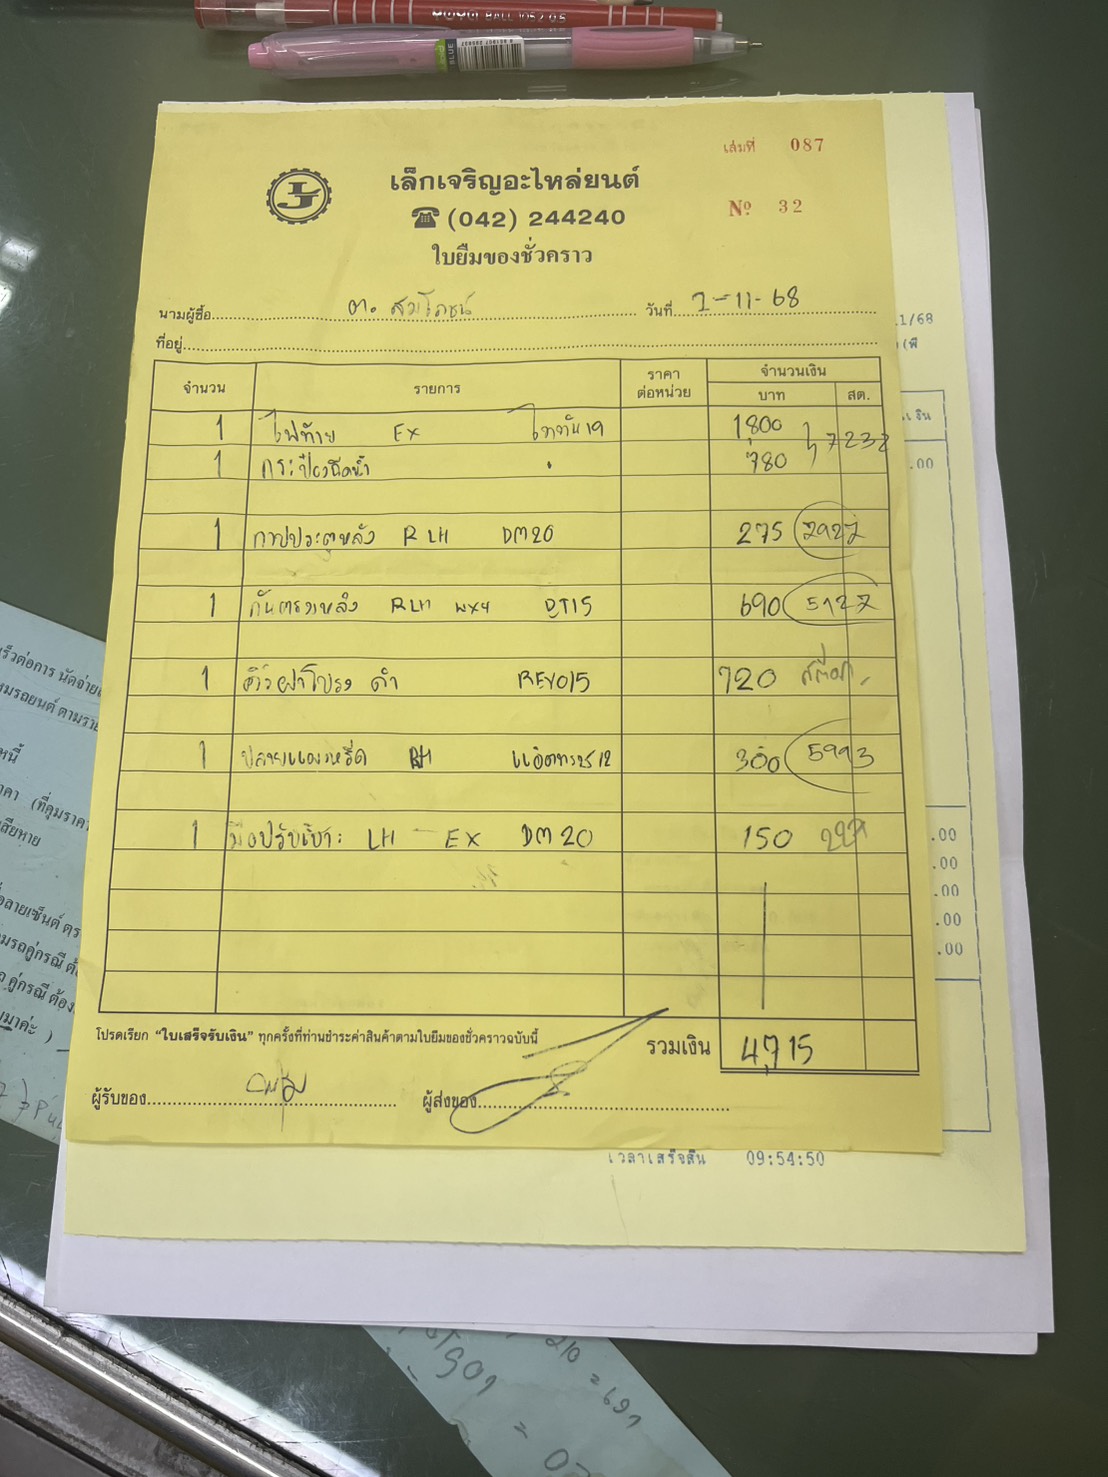 YOYA BALL 1052 0.5
BLUE
เล่มที่ 087
เล็กเจริญอะไหล่ยนต์
(042) 244240
Nº 32
ใบยืมของชั่วคราว
นามผู้ซื้อ ต. สมโภชน์ วันที่ 7-11-68
ที่อยู่
จำนวน รายการ ราคาต่อหน่วย จำนวนเงิน
บาท สต.
1 ไฟท้าย EX ไททัน19 1,800 7232
1 กระป๋องฉีดน้ำ 780
1 กาบประตูหลัง RLH DM20 275 2927
1 RLH 690 5127
1 คิ้วฝาโปรง ดำ REVO15 720
1 RH 12 300 5993
1 มือปรับเบาะ LH EX DM20 150
โปรดเรียก "ใบเสร็จรับเงิน" ทุกครั้งที่ท่านชำระค่าสินค้าตามใบยืมของชั่วคราวฉบับนี้
รวมเงิน 4,715
ผู้รับของ ผู้ส่งของ
เวลาเสร็จสิ้น 09:54:50
1/68
(พี
เงิน
.00
.00
.00
.00
.00
.00
ร็วต่อการ นัดจ่าย
มรถยนต์ ตามรา
หนี้
าคา (ที่คุมราคา
เสียหาย
ลายเซ็นต์ ตร
มรถคู่กรณี ต้
คู่กรณี ต้อง
มาค่ะ )
210 = 697